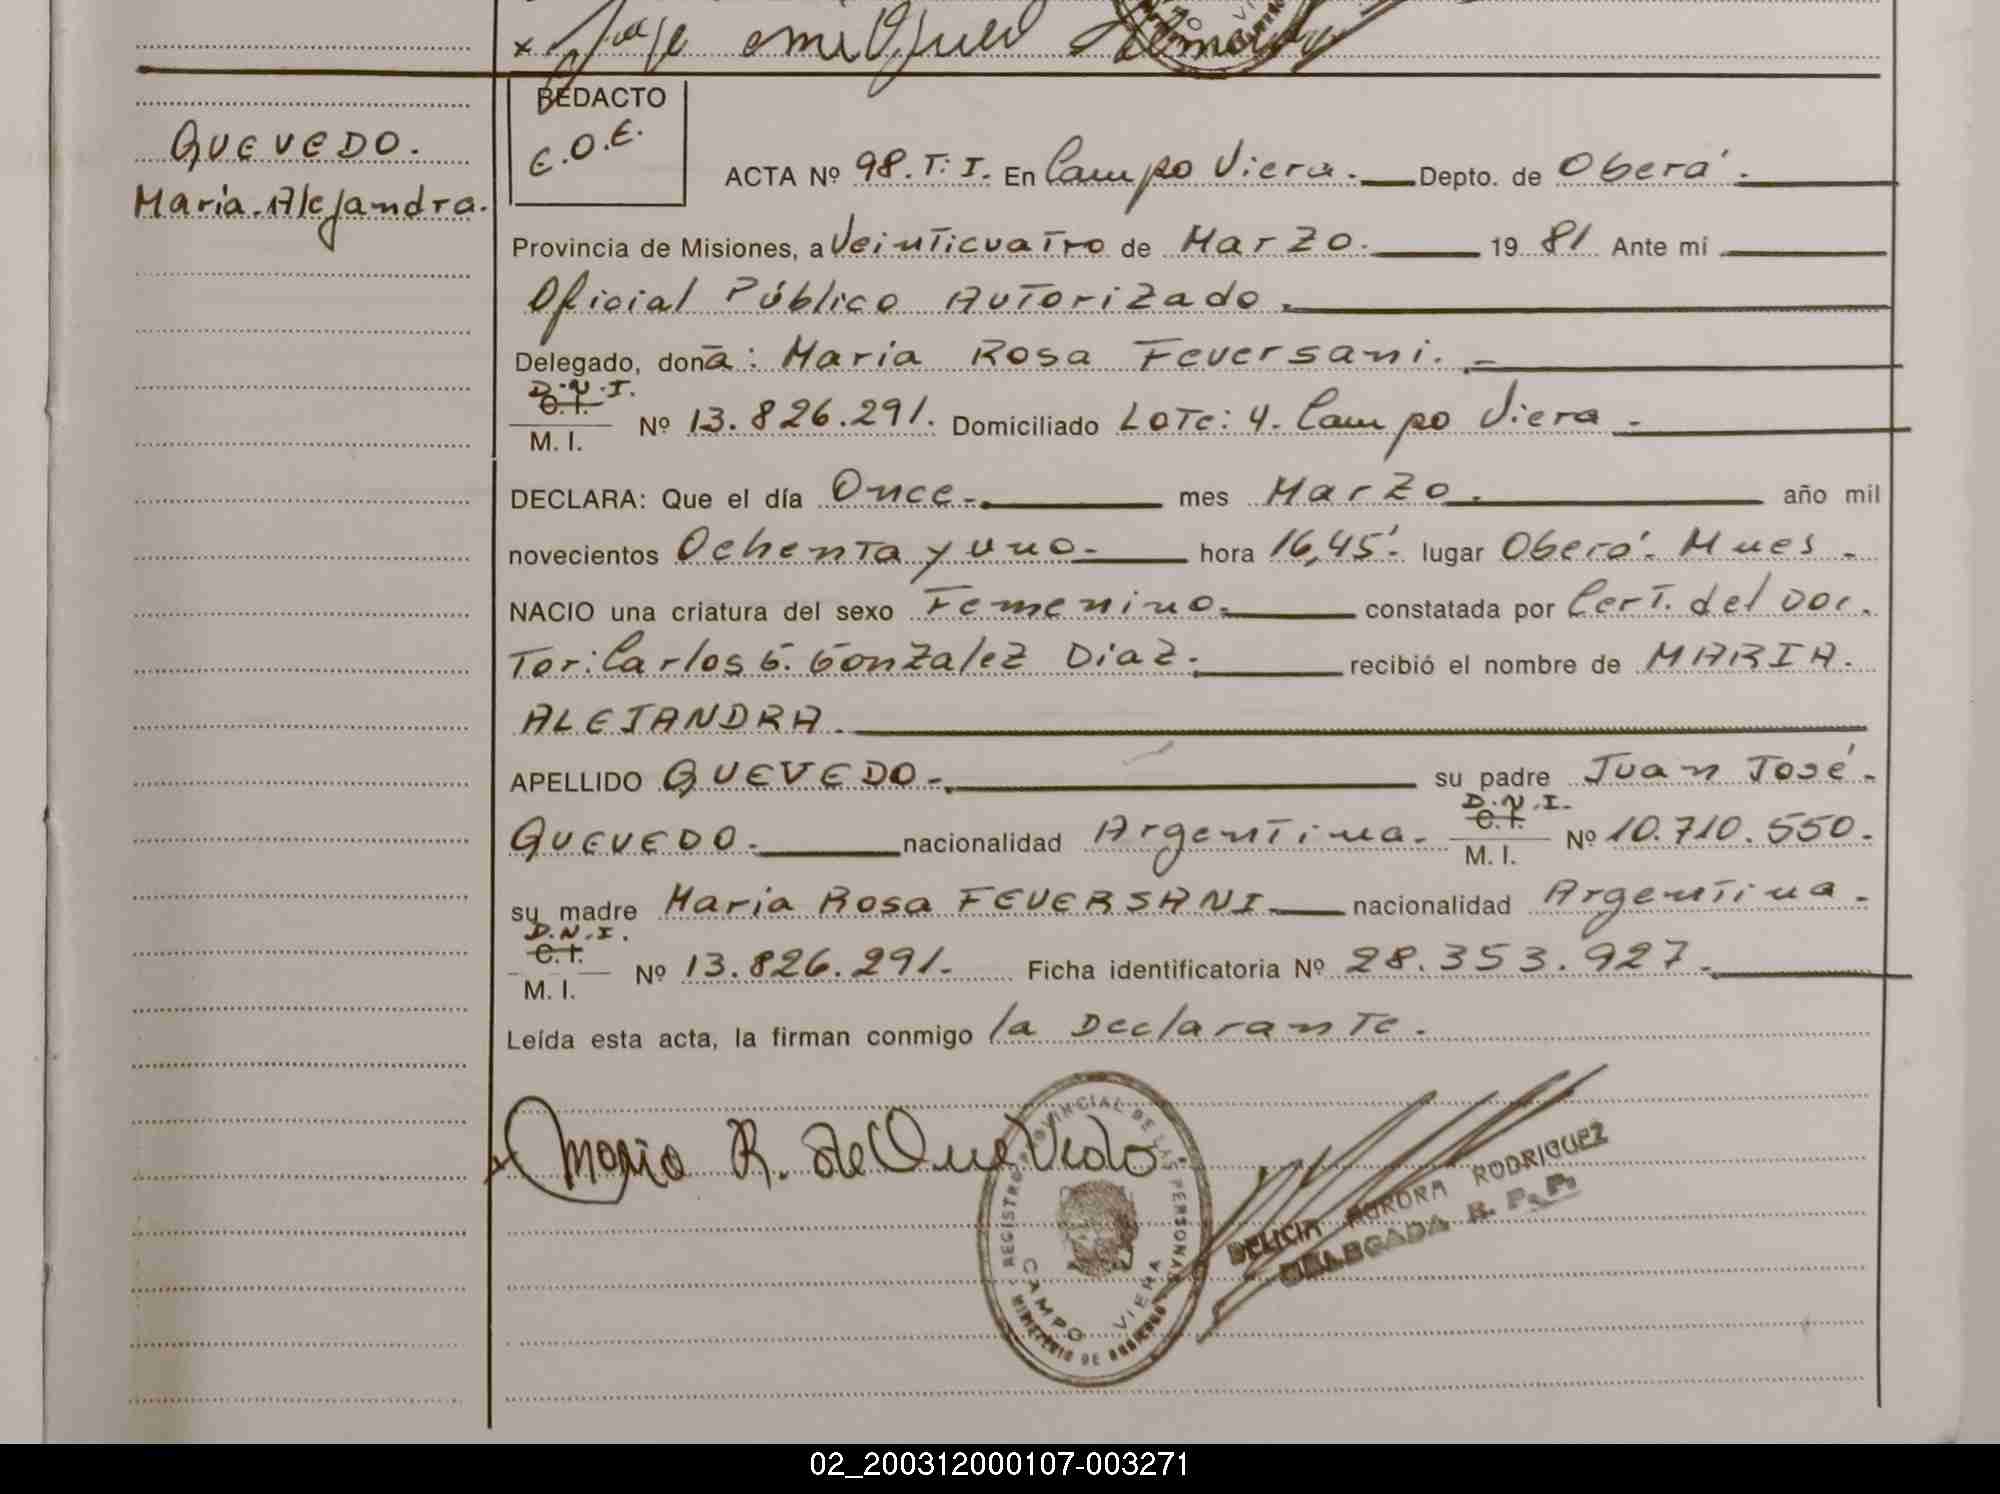 x Jose Miguel
REDACTO
E.O.E.
QUEVEDO.
Maria Alejandra.
ACTA Nº 98. T: I. En Campo Viera. Depto. de Oberá.
Provincia de Misiones, a Veinticuatro de Marzo. 19 81 Ante mi
Oficial Público Autorizado.
Delegado, doña: Maria Rosa Feversani.
D.N.I.
C.I.
M. I. Nº 13.826.291. Domiciliado Lote: 4. Campo Viera
DECLARA: Que el día Once. mes Marzo. año mil
novecientos Ochenta y uno hora 16,45'. lugar Oberá. Mnes
NACIO una criatura del sexo Femenino. constatada por Cert. del Doc.
Tor: Carlos G. Gonzalez Diaz. recibió el nombre de MARIA.
ALEJANDRA.
APELLIDO QUEVEDO. su padre Juan José
D.N.I.
C.I.
QUEVEDO. nacionalidad Argentina. M. I. Nº 10.710.550.
su madre Maria Rosa FEVERSANI nacionalidad Argentina
D.N.I.
C.I.
M. I. Nº 13.826.291. Ficha identificatoria Nº 28.353.927.
Leída esta acta, la firman conmigo la Declarante.
Maria R. de Quevedo
REGISTRO PROVINCIAL DE LAS PERSONAS
CAMPO VIERA
MINISTERIO DE GOBIERNO
DELICIA AURORA RODRIGUEZ
DELEGADA R. P. P.
02_200312000107-003271